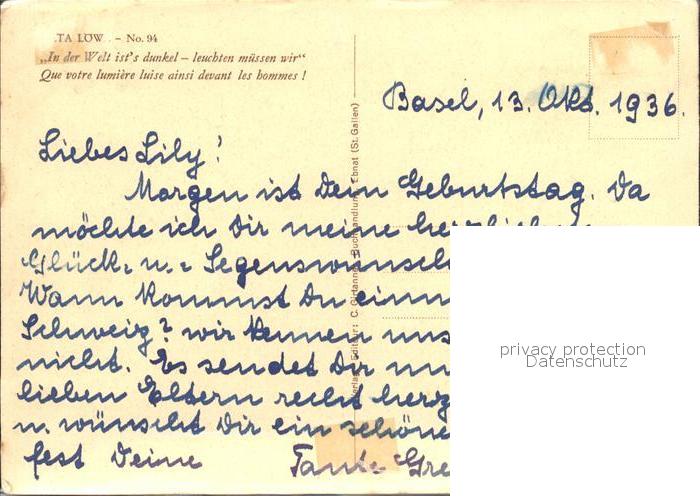 TA LÖW. – No. 94
„In der Welt ist's dunkel – leuchten müssen wir“
Que votre lumière luise ainsi devant les hommes !
Basel, 13. Okt. 1936.
Liebes Lily!
Morgen ist Dein Geburtstag. Da
möchte ich Dir meine
Glück- u. - Segenswünsche
Wann kommst Du
Schweiz? wir kennen uns
nicht. Es sendet Dir
lieben Eltern recht
u. wünscht Dir ein
fest Deine Tante Gre
Editeur: C. Girtanner, Buchhandlung Ebnat (St. Gallen)
privacy protection
Datenschutz